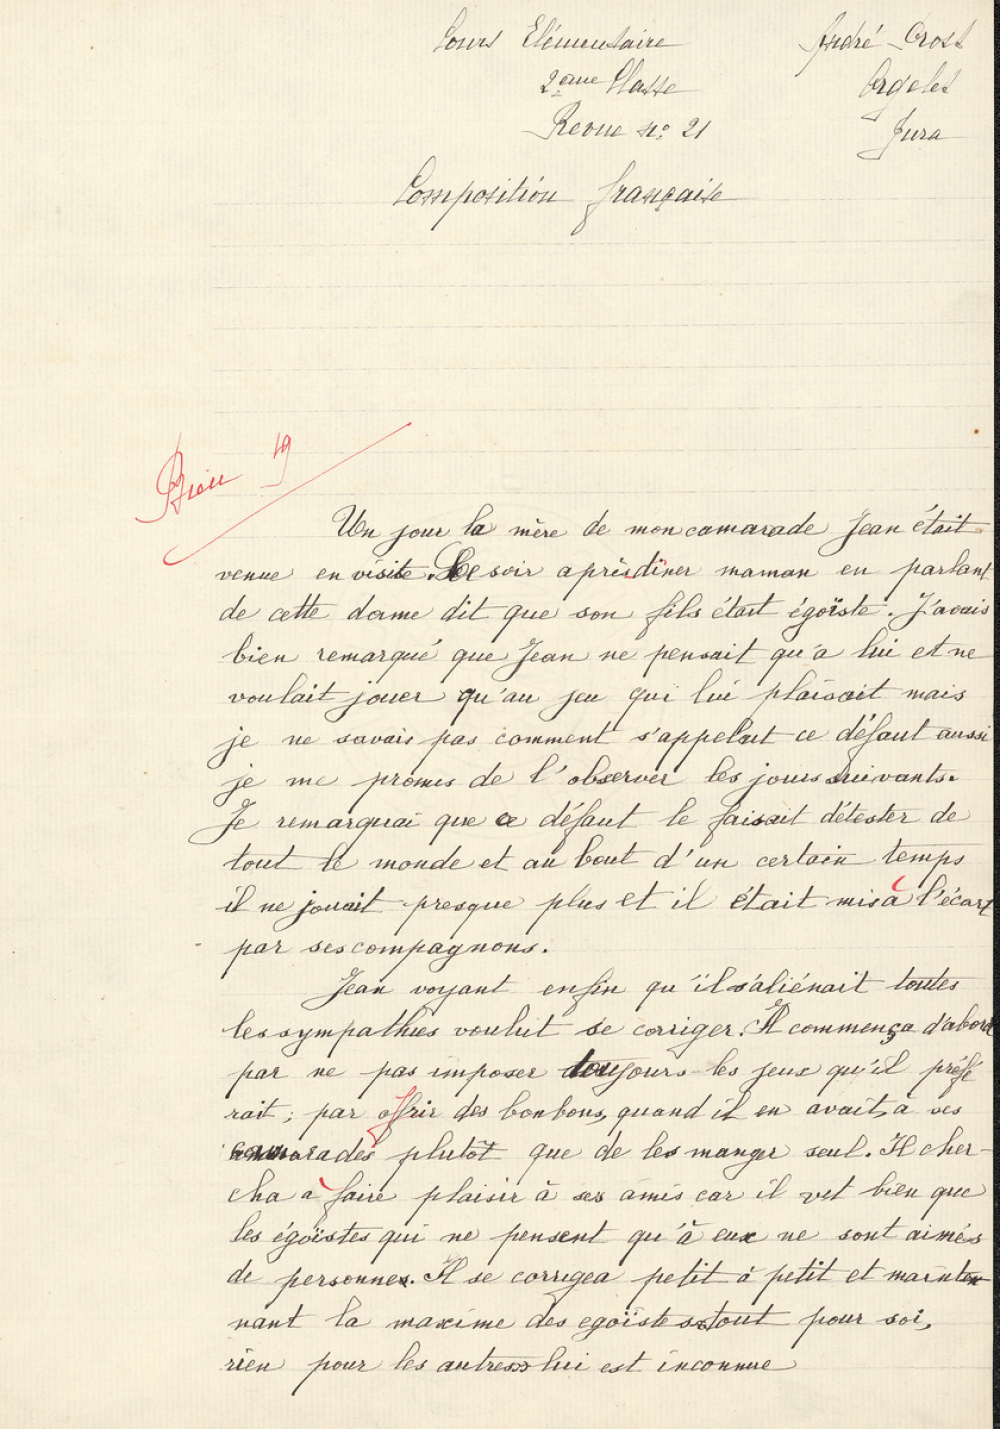 Cours Elémentaire
André Cros
2ème Classe
Orgelet
Revue no: 21
Jura
Composition française
Bien 19
Un jour la mère de mon camarade Jean était
venue en visite. Le soir après dîner maman en parlant
de cette dame dit que son fils était égoïste. J'avais
bien remarqué que Jean ne pensait qu'a lui et ne
voulait jouer qu'au jeu qui lui plaisait mais
je ne savais pas comment s'appelait ce défaut aussi
je me promis de l'observer les jours suivants.
Je remarquai que ce défaut le faisait détester de
tout le monde et au bout d'un certain temps
il ne jouait presque plus et il était mis à l'écart
par ses compagnons.
Jean voyant enfin qu'il s'aliénait toutes
les sympathies voulut se corriger. Il commença d'abord
par ne pas imposer toujours les jeux qu'il préfé
rait; par offrir des bonbons, quand il en avait, à ses
camarades plutôt que de les manger seul. Il cher-
cha à faire plaisir à ses amis car il vit bien que
les égoïstes qui ne pensent qu'à eux ne sont aimés
de personne. Il se corrigea petit à petit et mainte
nant la maxime des egoïstes "tout pour soi,
rien pour les autres" lui est inconnue